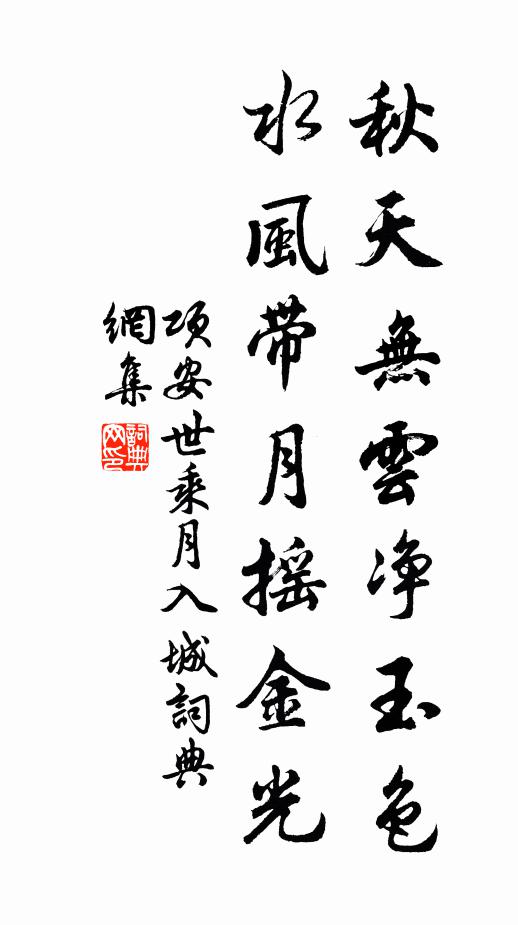 秋天無雲净玉色
水風带月摇金光
項安世乘月入城詞典
網集
詞典
网印